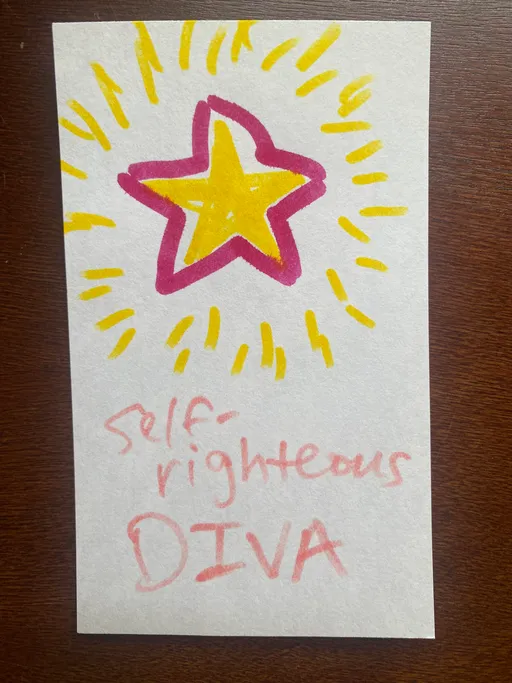 self-
righteous
DIVA